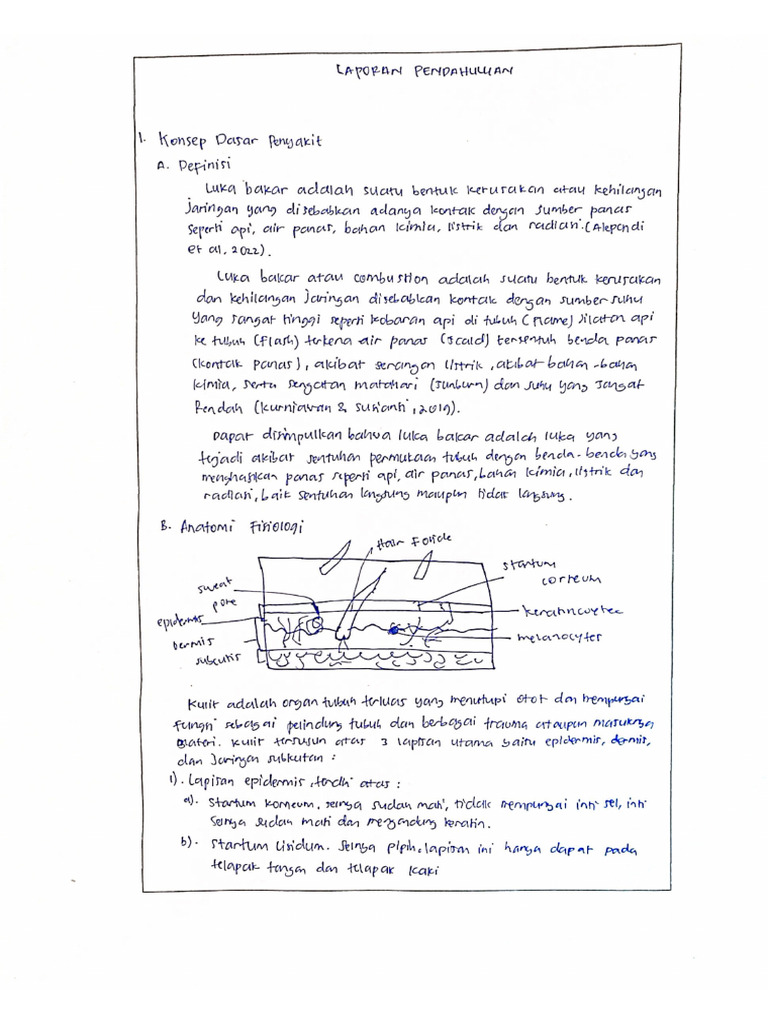 LAPORAN PENDAHULUAN
1. Konsep Dasar Penyakit
A. Definisi
Luka bakar adalah suatu bentuk kerusakan atau kehilangan
jaringan yang disebabkan adanya kontak dengan sumber panas
seperti api, air panas, bahan kimia, listrik dan radiasi. (Alepandi
et al, 2022).
Luka bakar atau combustion adalah suatu bentuk kerusakan
dan kehilangan jaringan disebabkan kontak dengan sumber suhu
yang sangat tinggi seperti kobaran api di tubuh (flame) jilatan api
ke tubuh (flash) terkena air panas (scald) tersentuh benda panas
(kontak panas), akibat serangan listrik, akibat bahan-bahan
kimia, serta sengatan matahari (sunburn) dan suhu yang sangat
Rendah (Kurniawan & Susianti, 2017).
Dapat disimpulkan bahwa luka bakar adalah luka yang
terjadi akibat sentuhan permukaan tubuh dengan benda-benda yang
menghasilkan panas seperti api, air panas, bahan kimia, listrik dan
radiasi, baik sentuhan langsung maupun tidak langsung.
B. Anatomi Fisiologi
Hair Folicle
startum
corneum
sweat
pore
keratinocytes
epidermis
melanocytes
Dermis
subcutis
Kulit adalah organ tubuh terluas yang menutupi otot dan mempunyai
fungsi sebagai pelindung tubuh dan berbagai trauma ataupun masuknya
materi. Kulit tersusun atas 3 lapisan utama yaitu epidermis, dermis,
dan jaringan subkutan :
1). Lapisan epidermis, terdiri atas :
a). Startum korneum, selnya sudah mati, tidak mempunyai inti sel, inti
selnya sudah mati dan mengandung keratin.
b). Startum Lisidum. Selnya pipih, lapisan ini hanya dapat pada
telapak tangan dan telapak kaki